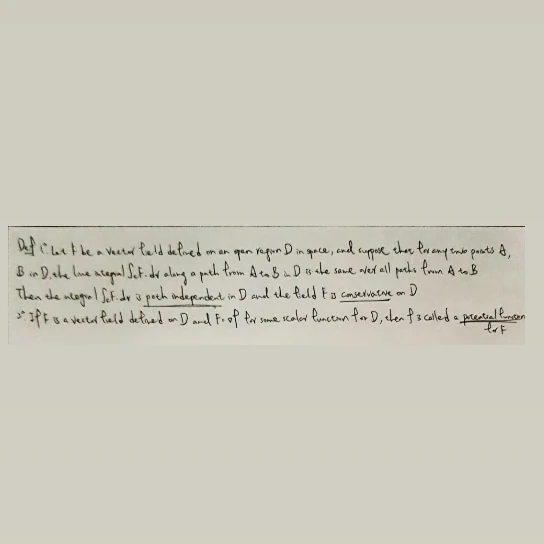 Def 1° Let F be a vector field defined on an open region D in space, and suppose that for any two points A,
B in D, the line integral ∫c F. dr along a path from A to B in D is the same over all paths from A to B
Then the integral ∫c F. dr is path independent in D and the field F is conservative on D
2° If F is a vector field defined on D and F = ∇f for some scalar function for D, then f is called a potential function
for F